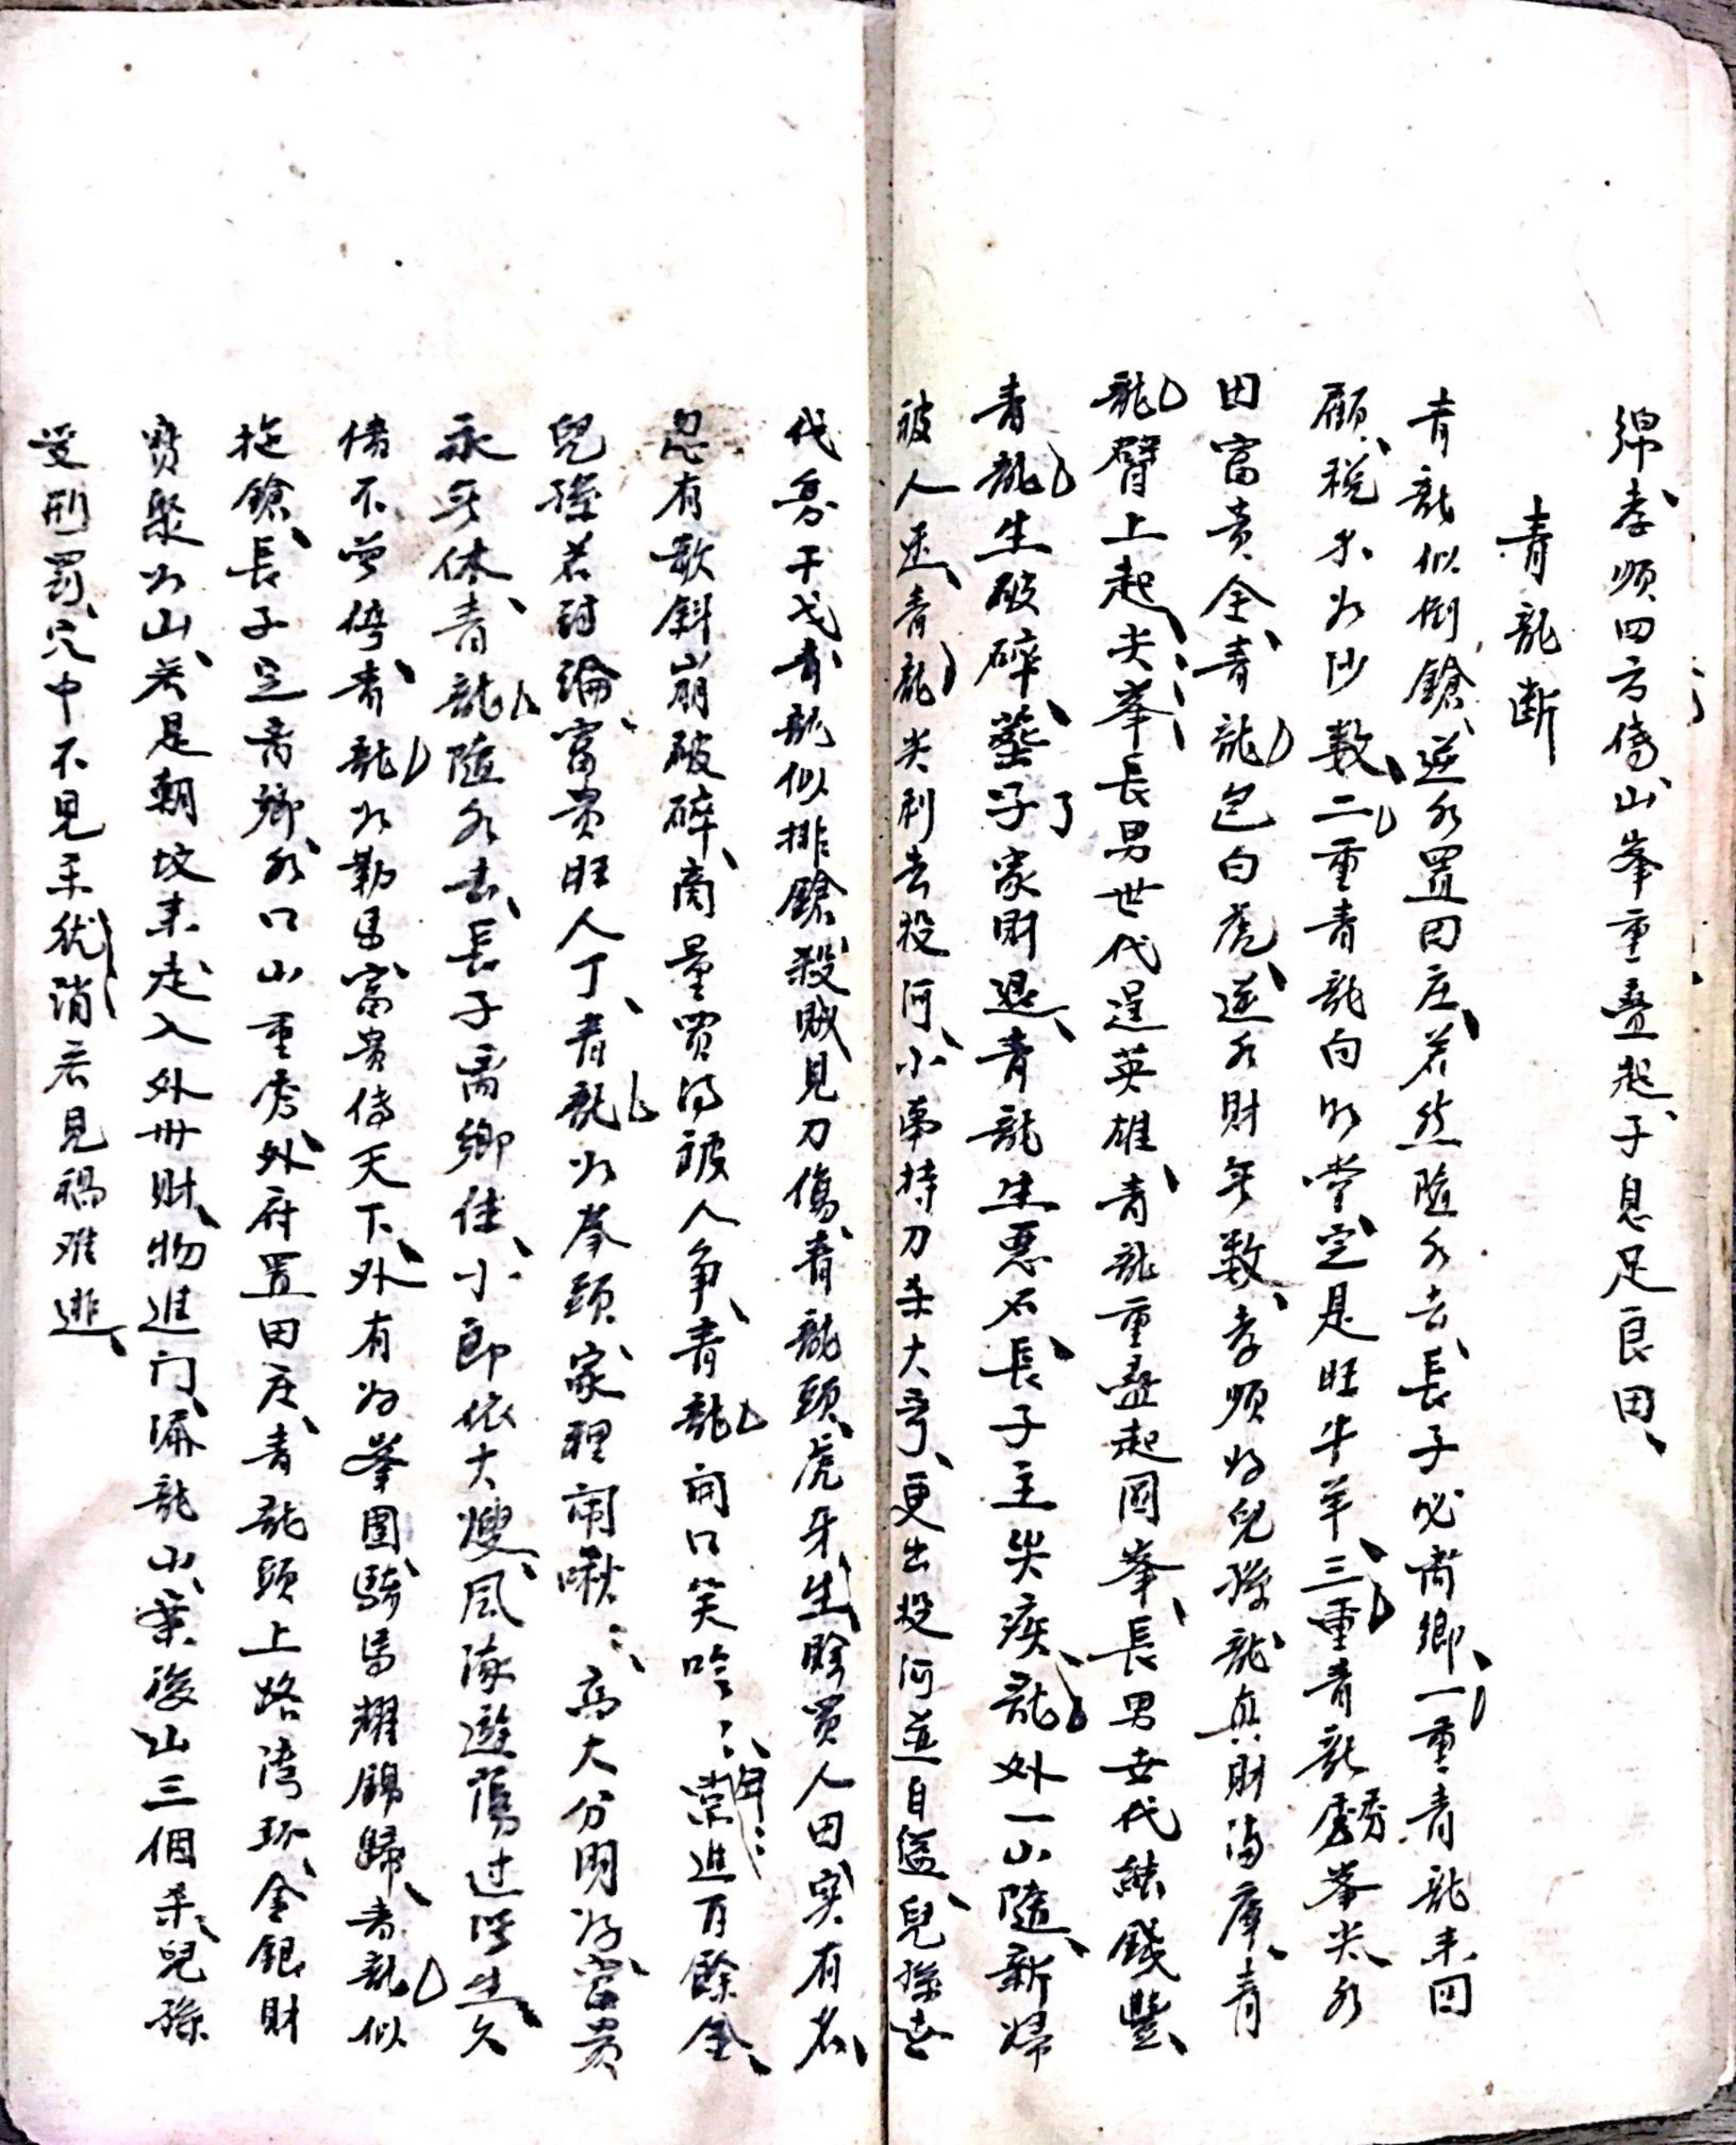 綿、孝順四方傳、山峯重疊起、子息足良田、
青龍断
青龍似倒鎗、逆水置田庄、若然隨水去、長子必离鄉、一重青龍来回
顧、税水如沙数、二重青龍向明堂、定是旺牛羊、三重青龍秀峯尖、水
田富贵全、青龍包白虎、逆水財無数、孝順好兒孫、龍真財滿庫、青
龍臂上起尖峯、長男世代逞英雄、青龍重叠起圓峯、長男世代結錢豐、
青龍生破碎、塟了家財退、青龍生惡石、長子主失疾、龍外一山隨、新婦
被人迷、青龍尖利去投河、小事持刀杀大哥、更出投河並自缢、兒孫世
代務干戈、青龍似排鎗、殺賊見刀傷、青龍頭虎牙生、賒買人田、实有名、
忽有欹斜崩破碎、商量買得被人争、青龍開口笑吟吟、常進百餘金、
兒孫若討論、富贵旺人丁、青龍如拳頭、家裡閙啾啾、高大分明好富贵
永無休、青龍隨水去、長子离鄉住、小郎依大嫂、風流遊蕩过浮生、久
債不曾停、青龍如勒馬、富贵傳天下、外有好峯圍、騎馬耀錦歸、青龍似
拖鎗、長子定离鄉、水口山重秀、外府置田庄、青龍頭上路湾环、金銀財
寶聚如山、若是朝坟来走入、外州財物進门、滿龍山葉後山三個杀、兒孫
受刑罰、穴中不見禾犹消、若見禍难逃、